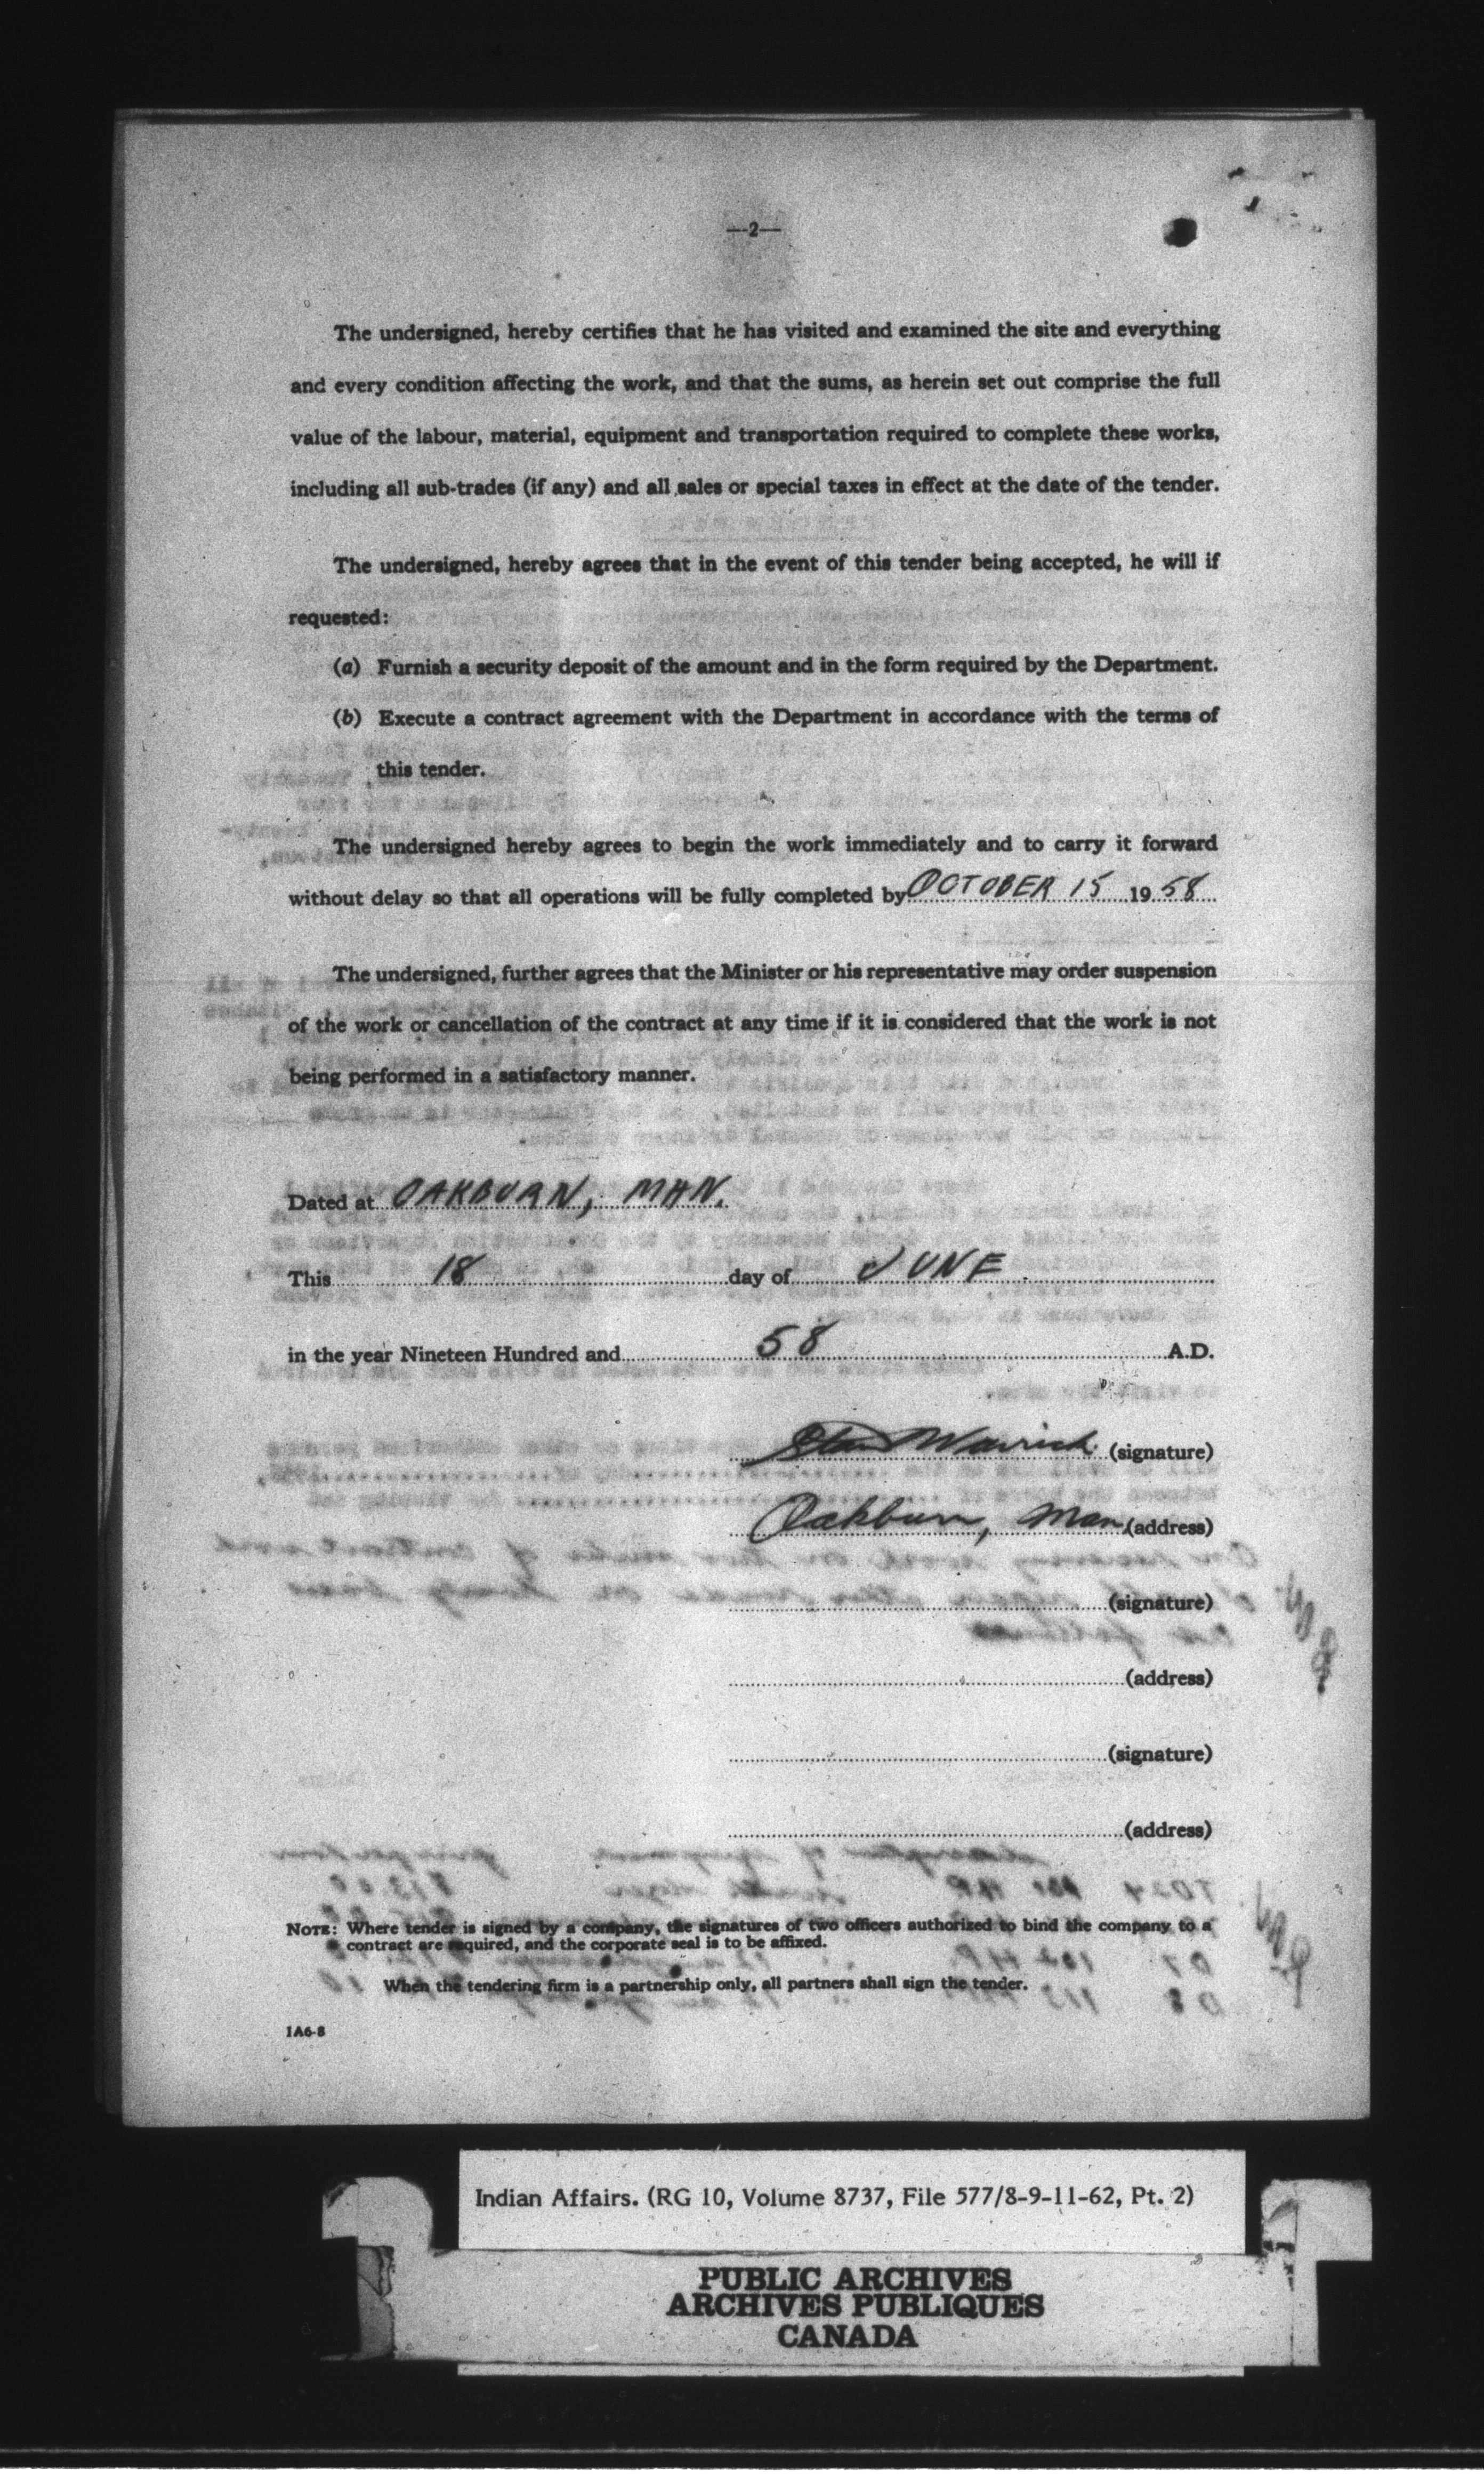 —2—
The undersigned, hereby certifies that he has visited and examined the site and everything
and every condition affecting the work, and that the sums, as herein set out comprise the full
value of the labour, material, equipment and transportation required to complete these works,
including all sub-trades (if any) and all sales or special taxes in effect at the date of the tender.
The undersigned, hereby agrees that in the event of this tender being accepted, he will if
requested:
(a) Furnish a security deposit of the amount and in the form required by the Department.
(b) Execute a contract agreement with the Department in accordance with the terms of
this tender.
The undersigned hereby agrees to begin the work immediately and to carry it forward
without delay so that all operations will be fully completed by OCTOBER 15 19 58
The undersigned, further agrees that the Minister or his representative may order suspension
of the work or cancellation of the contract at any time if it is considered that the work is not
being performed in a satisfactory manner.
Dated at OAKBURN, MAN.
This 18 day of JUNE
in the year Nineteen Hundred and 58 A.D.
Stan Warrick (signature)
Oakburn, Man. (address)
(signature)
(address)
(signature)
(address)
NOTE: Where tender is signed by a company, the signatures of two officers authorized to bind the company to a
contract are required, and the corporate seal is to be affixed.
When the tendering firm is a partnership only, all partners shall sign the tender.
1A6-8
Indian Affairs. (RG 10, Volume 8737, File 577/8-9-11-62, Pt. 2)
PUBLIC ARCHIVES
ARCHIVES PUBLIQUES
CANADA